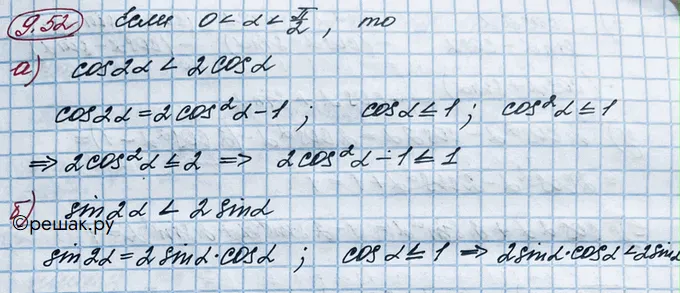 9.52 Если 0 < α < π/2, то
а) cos2α < 2cosα
cos2α = 2cos²α - 1; cosα ≤ 1; cos²α ≤ 1
⇒ 2cos²α ≤ 2 ⇒ 2cos²α - 1 ≤ 1
б) sin2α < 2sinα
©решак.ру
sin2α = 2sinα·cosα; cosα ≤ 1 ⇒ 2sinα·cosα < 2sinα